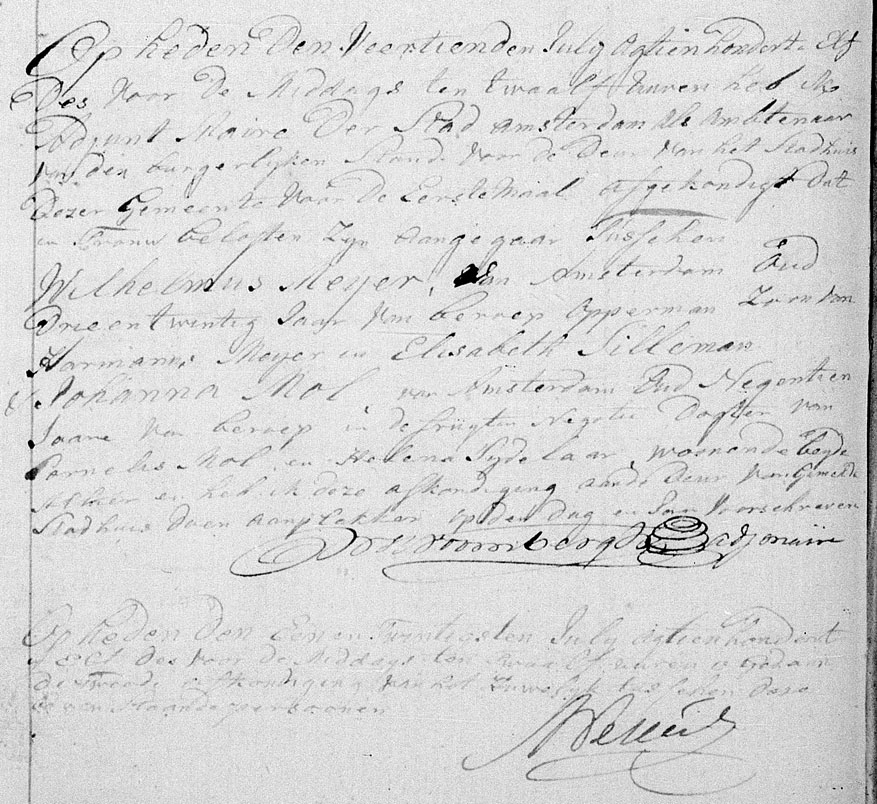 Op heden den Veertienden July agtienhondert Elf
des Voor de Middags ten twaalf uuren heb
Adjunt Maire der Stad Amsterdam als Ambtenaar
van den burgerlyken Stand voor de Deur van het Stadhuis
dezer Gemeente voor de Eerste Maal afgekondigt dat
Trouw beloften zyn aangegaan Tusschen
Wilhelmus Meyer, van Amsterdam Oud
Drieentwintig Jaar van beroep Opperman Zoon van
Harmanus Meyer en Elisabeth Silleman
Johanna Mol van Amsterdam Oud Negentien
Jaare van beroep in de fruyten Negotie Dogter van
Cornelis Mol en Helena Sydelaar, woonende beyde
alhier en heb ik deze afkondiging aan de Deur van gemelde
Stadhuis doen aanplakken op den dag en Jaar Voorschreven
adj maire
Op heden den Eenen Twintigsten July agtienhondert
elf des voor de Middags ten Twaalf uuren is gedaan
de tweede afkondiging van het Huwelyk tusschen deze
bovenstaande persoonen